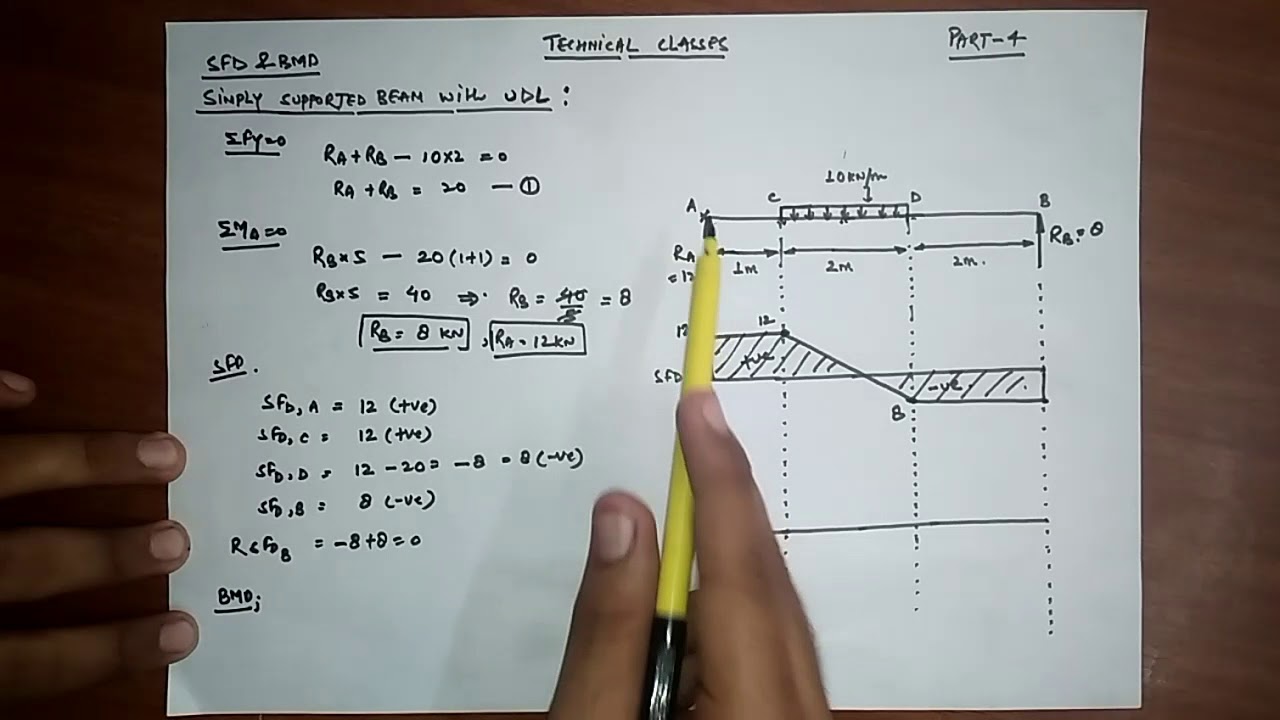 TECHNICAL CLASSES
PART-4
SFD & BMD
SIMPLY SUPPORTED BEAM WITH UDL :
ΣFY=0
RA + RB - 10×2 = 0
RA + RB = 20 - ①
ΣMA=0
RB×5 - 20(1+1) = 0
RB×5 = 40 ⇒ RB = 40/5 = 8
RB = 8 KN , RA = 12KN
SFD.
SFD,A = 12 (+ve)
SFD,C = 12 (+ve)
SFD,D = 12 - 20 = -8 = 8 (-ve)
SFD,B = 8 (-ve)
RSFDB = -8+8=0
BMD;
10KN/m
A C D B
RA = 12
RB = 8
1m 2m 2m.
12 12
+ve
SFD -ve
8